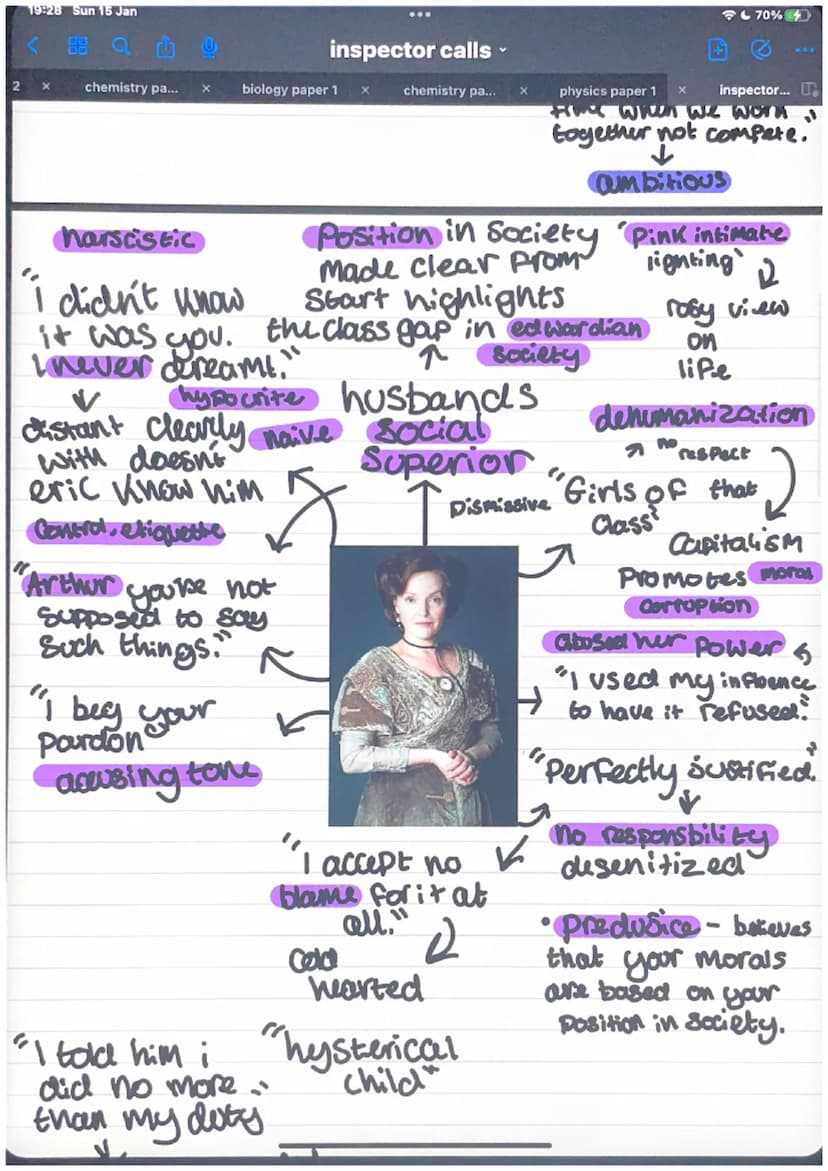 19:28 Sun 15 Jan
70%
inspector calls
2
chemistry pa...
biology paper 1
chemistry pa...
physics paper 1
inspector...
time when we work
together not compete."
ambitious
narscistic
"I didn't know
it was you.
I never dreamt."
distant
with
eric
clearly
doesn't
know him
hypocrite
naive
Position in society
made clear from
start highlights
the class gap in edwardian
society
husbands
social
superior
'pink intimate
lighting'
rosy view
on
life
dehumanization
no
respect
Dismissive
"Girls of that
class"
Capitalism
promotes moral
corruption
control, etiquette
"Arthur you're not
supposed to say
such things."
abused her power
"I used my influence
to have it refused."
"I beg your
pardon"
accusing tone
"Perfectly justified."
no responsbility
desenitized
"I accept no
blame for it at
all."
Cold
hearted
• predusice - believes
that your morals
are based on your
position in society.
"I told him i
did no more
than my duty"
"hysterical
child"